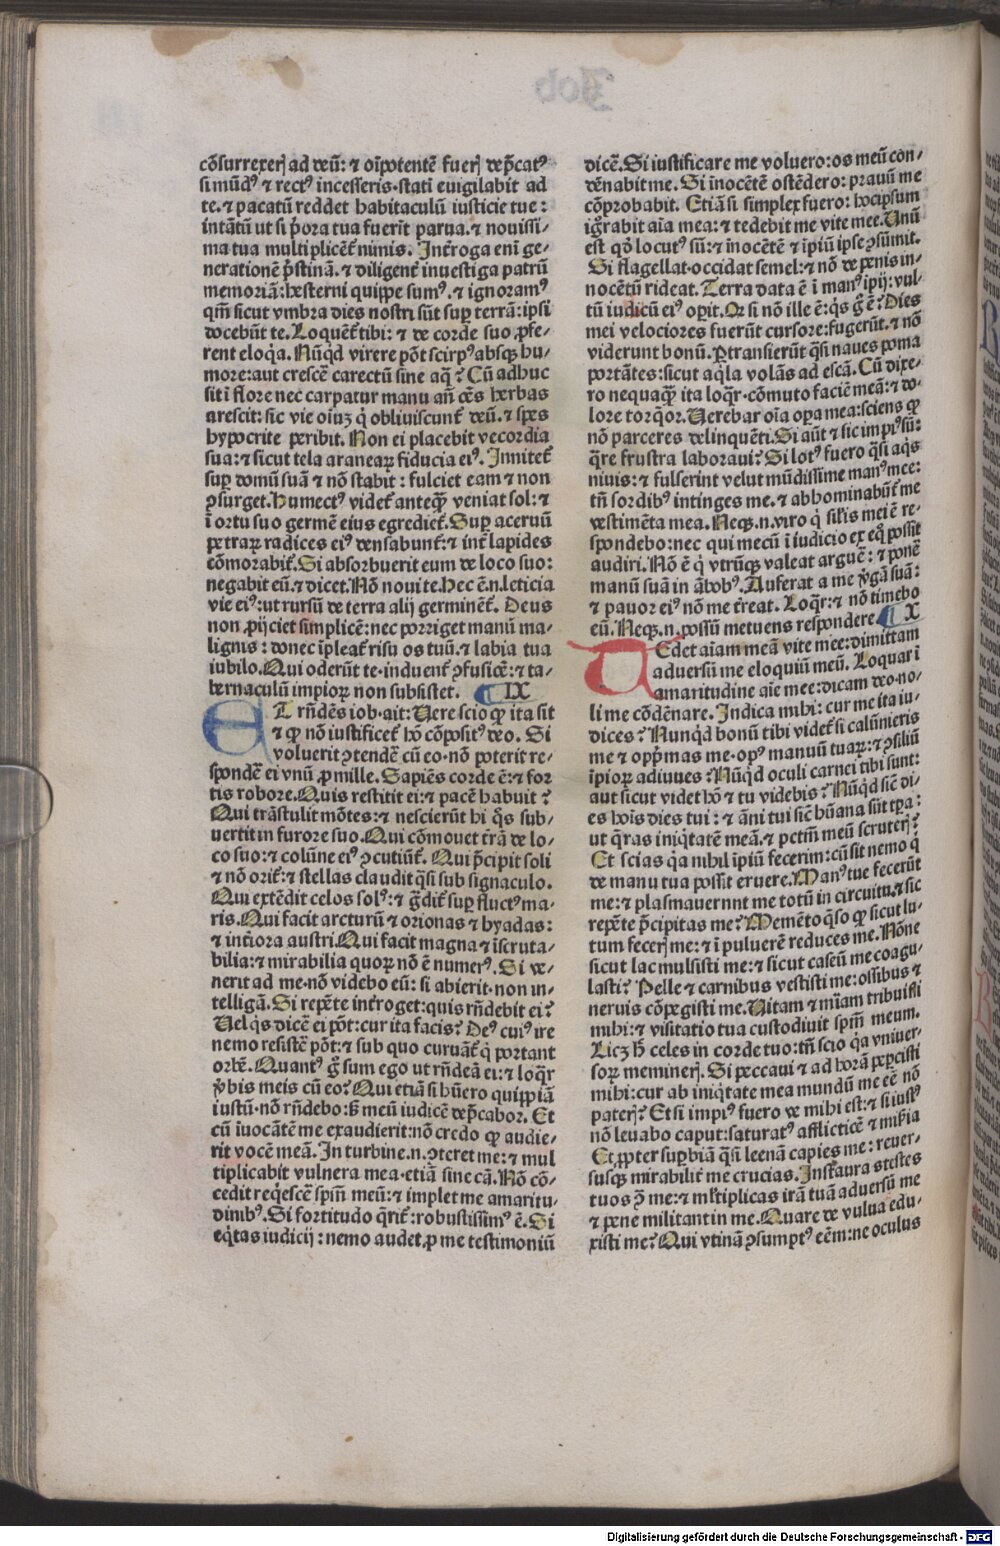 Job
cōsurrexerꝭ ad deū: ⁊ oīpotentē fuerꝭ dep̄catꝰ
si mūdꝰ ⁊ rectꝰ incesseris. stati euigilabit ad
te. ⁊ pacatū reddet habitaculū iusticie tue:
intātū ut si p̄ora tua fuerit parua. ⁊ nouissi/
ma tua multiplicēt nimis. Int̄roga enī ge/
nerationē p̄stinā. ⁊ diligent̄ inuestiga patrū
memoriā: hesterni quippe sumꝰ. ⁊ ignoramꝰ
qm̄ sicut vmbra dies nostri sūt suꝑ terrā: ipsi
docebūt te. Loquēt̄ tibi: ⁊ de corde suo ꝓfe/
rent eloq̄a. Nūq̄d virere pōt scirpꝰ absqꝫ hu/
more: aut crescē carectū sine aq̄? Cū adhuc
sit ī flore nec carpatur manu añ oēs herbas
arescit: sic vie oīuꝫ q̇ obliuiscunt̄ deū. ⁊ spes
hypocrite peribit. Non ei placebit vecordia
sua: ⁊ sicut tela araneaꝝ fiducia eiꝰ. Innitet̄
suꝑ domū suā ⁊ nō stabit: fulciet eam ⁊ non
ꝯsurget. Humectꝰ videt̄ anteqꝙ̄ veniat sol: ⁊
ī ortu suo germē eius egrediet̄. Suꝑ aceruū
petraꝝ radices eiꝰ densabunt̄: ⁊ int̄ lapides
cōmorabit̄. Si absorbuerit eum de loco suo:
negabit eū. ⁊ dicet. Nō noui te. Hec ē.n. leticia
vie eiꝰ: ut rursū de terra alij germinēt̄. Deus
non ꝓijciet simplicē: nec porriget manū ma/
lignis: donec īpleat̄ risu os tuū. ⁊ labia tua
iubilo. Qui oderūt te. induent̄ ꝯfusiōe: ⁊ ta/
bernaculū impioꝝ non subsistet. IX
ET rn̄dēs iob. ait: Uere scio ꝙ ita sit
⁊ ꝙ nō iustificet̄ hō cōpositꝰ deo. Si
voluerit ꝯtendē cū eo. nō poterit re/
spondē ei vnū ꝓ mille. Sapiēs corde ē: ⁊ for
tis robore. Quis restitit ei: ⁊ pacē habuit?
Qui trāstulit mōtes: ⁊ nescierūt hi q̇s sub/
uertit in furore suo. Qui cōmouet t̄rā de lo/
co suo: ⁊ colūne eiꝰ ꝯcutiūt̄. Qui p̄cipit soli
⁊ nō orit̄: ⁊ stellas claudit q̄si sub signaculo.
Qui extēdit celos solꝰ: ⁊ g̃dit̄ suꝑ fluctꝰ ma/
ris. Qui facit arcturū ⁊ orionas ⁊ hyadas:
⁊ int̄iora austri. Qui facit magna ⁊ īscruta/
bilia: ⁊ mirabilia quoꝝ nō ē numerꝰ. Si ve/
nerit ad me. nō videbo eū: si abierit. non in/
telligā. Si repēte int̄roget: quis rn̄debit ei?
Uel q̇s dicē ei pōt: cur ita facis? Deꝰ cuiꝰ ire
nemo resistē pōt: ⁊ sub quo curuāt̄ q̇ portant
orbē. Quantꝰ g̃ sum ego ut rn̄deā ei: ⁊ loqr̄
v̄bis meis cū eo? Qui etiā si hūero quippiā
iustū. nō rn̄debo: sꝫ meū iudicē dep̄cabor. Et
cū īuocātē me exaudierit: nō credo ꝙ audie/
rit vocē meā. In turbine.n. ꝯteret me: ⁊ mul
tiplicabit vulnera mea. etiā sine cā. Nō cō/
cedit reqͥescē spm̄ meū: ⁊ implet me amaritu/
dinibꝰ. Si fortitudo q̄rit̄: robustissimꝰ ē. Si
eq̇tas iudicij: nemo audet. ꝓ me testimoniū
dicē. Si iustificare me voluero: os meū con/
dēnabit me. Si īnocētē ostēdero: prauū me
cōprobabit. Etiā si simplex fuero: hoc ipsum
ig̃rabit aīa mea: ⁊ tedebit me vite mee. Unū
est qd̄ locutꝰ sū: ⁊ īnocētē ⁊ īpiū ipse ꝯsūmit.
Si flagellat. occidat semel: ⁊ nō de penis in/
nocētū rideat. Terra data ē ī manꝰ īpij: vul/
tū iudicū eiꝰ oꝑit. Qꝫ si nō ille ē: q̇s g̃ ē? Dies
mei velociores fuerūt cursore: fugerūt. ⁊ nō
viderunt bonū. Ptransierūt q̄si naues poma
portātes: sicut aq̇la volās ad escā. Cū dixe/
ro nequaꝙ̄ ita loqr̄. cōmuto faciē meā: ⁊ do/
lore torq̇or. Uerebar oīa oꝑa mea: sciens ꝙ
nō parceres delinquēti. Si aūt ⁊ sic impiꝰ sū:
q̄re frustra laboraui? Si lotꝰ fuero q̄si aq̇s
niuis: ⁊ fulserint velut mūdissime manꝰ mee:
tn̄ sordibꝰ intinges me. ⁊ abhominabūt̄ me
vestimēta mea. Neqꝫ.n. viro q̇ sil̄is mei ē re/
spondebo: nec qui mecū ī iudicio ex eq̄ possit
audiri. Nō ē q̇ vtrūqꝫ valeat arguē: ⁊ ponē
manū suā in ābobꝰ. Auferat a me v̄gā suā:
⁊ pauor eiꝰ nō me t̄reat. Loqr̄: ⁊ nō timebo
eū. Neqꝫ.n. possū metuens respondere. X
TEdet aīam meā vite mee: dimittam
aduersū me eloquiū meū. Loquar ī
amaritudine aīe mee: dicam deo. no/
li me cōdēnare. Indica mihi: cur me ita iu/
dices? Nunq̄d bonū tibi videt̄ si calūnieris
me ⁊ opp̄mas me. opꝰ manuū tuaꝝ: ⁊ ꝯsiliū
īpioꝝ adiuues? Nūq̄d oculi carnei tibi sunt:
aut sicut videt hō ⁊ tu videbis? Nūq̄d sic̄ di/
es hoīs dies tui: ⁊ āni tui sic̄ hūana sūt tꝑa:
ut q̄ras iniq̇tatē meā. ⁊ pctm̄ meū scruterꝭ?
Et scias q̇a nihil īpiū fecerim: cū sit nemo q̇
de manu tua possit eruere. Manꝰ tue fecerūt
me: ⁊ plasmauerunt me totū in circuitu. ⁊ sic
repēte p̄cipitas me? Memēto q̄so ꝙ sicut lu/
tum fecerꝭ me: ⁊ ī puluerē reduces me. Nōne
sicut lac mulsisti me: ⁊ sicut caseū me coagu/
lasti? Pelle ⁊ carnibus vestisti me: ossibus ⁊
neruis cōpegisti me. Uitam ⁊ mīam tribuisti
mihi: ⁊ visitatio tua custodiuit spm̄ meum.
Licꝫ hꝫ celes in corde tuo: tn̄ scio q̇a vniuer/
soꝝ memineꝭ. Si peccaui ⁊ ad horā peꝑcisti
mihi: cur ab iniq̇tate mea mundū me eē nō
paterꝭ? Et si impiꝰ fuero ve mihi est: ⁊ si iustꝰ
nō leuabo caput: saturatꝰ afflictiōe ⁊ mis̄ia
Et ꝓpter suꝑbiā q̄si leenā capies me: reuer/
susqꝫ mirabilit̄ me crucias. Instaura s testes
tuos ꝯ me: ⁊ mlt̄iplicas irā tuā aduersū me
⁊ pene militant in me. Quare de vulua edu/
xisti me? Qui vtinā ꝯsumptꝰ eēm: ne oculus
Digitalisierung gefördert durch die Deutsche Forschungsgemeinschaft - DFG